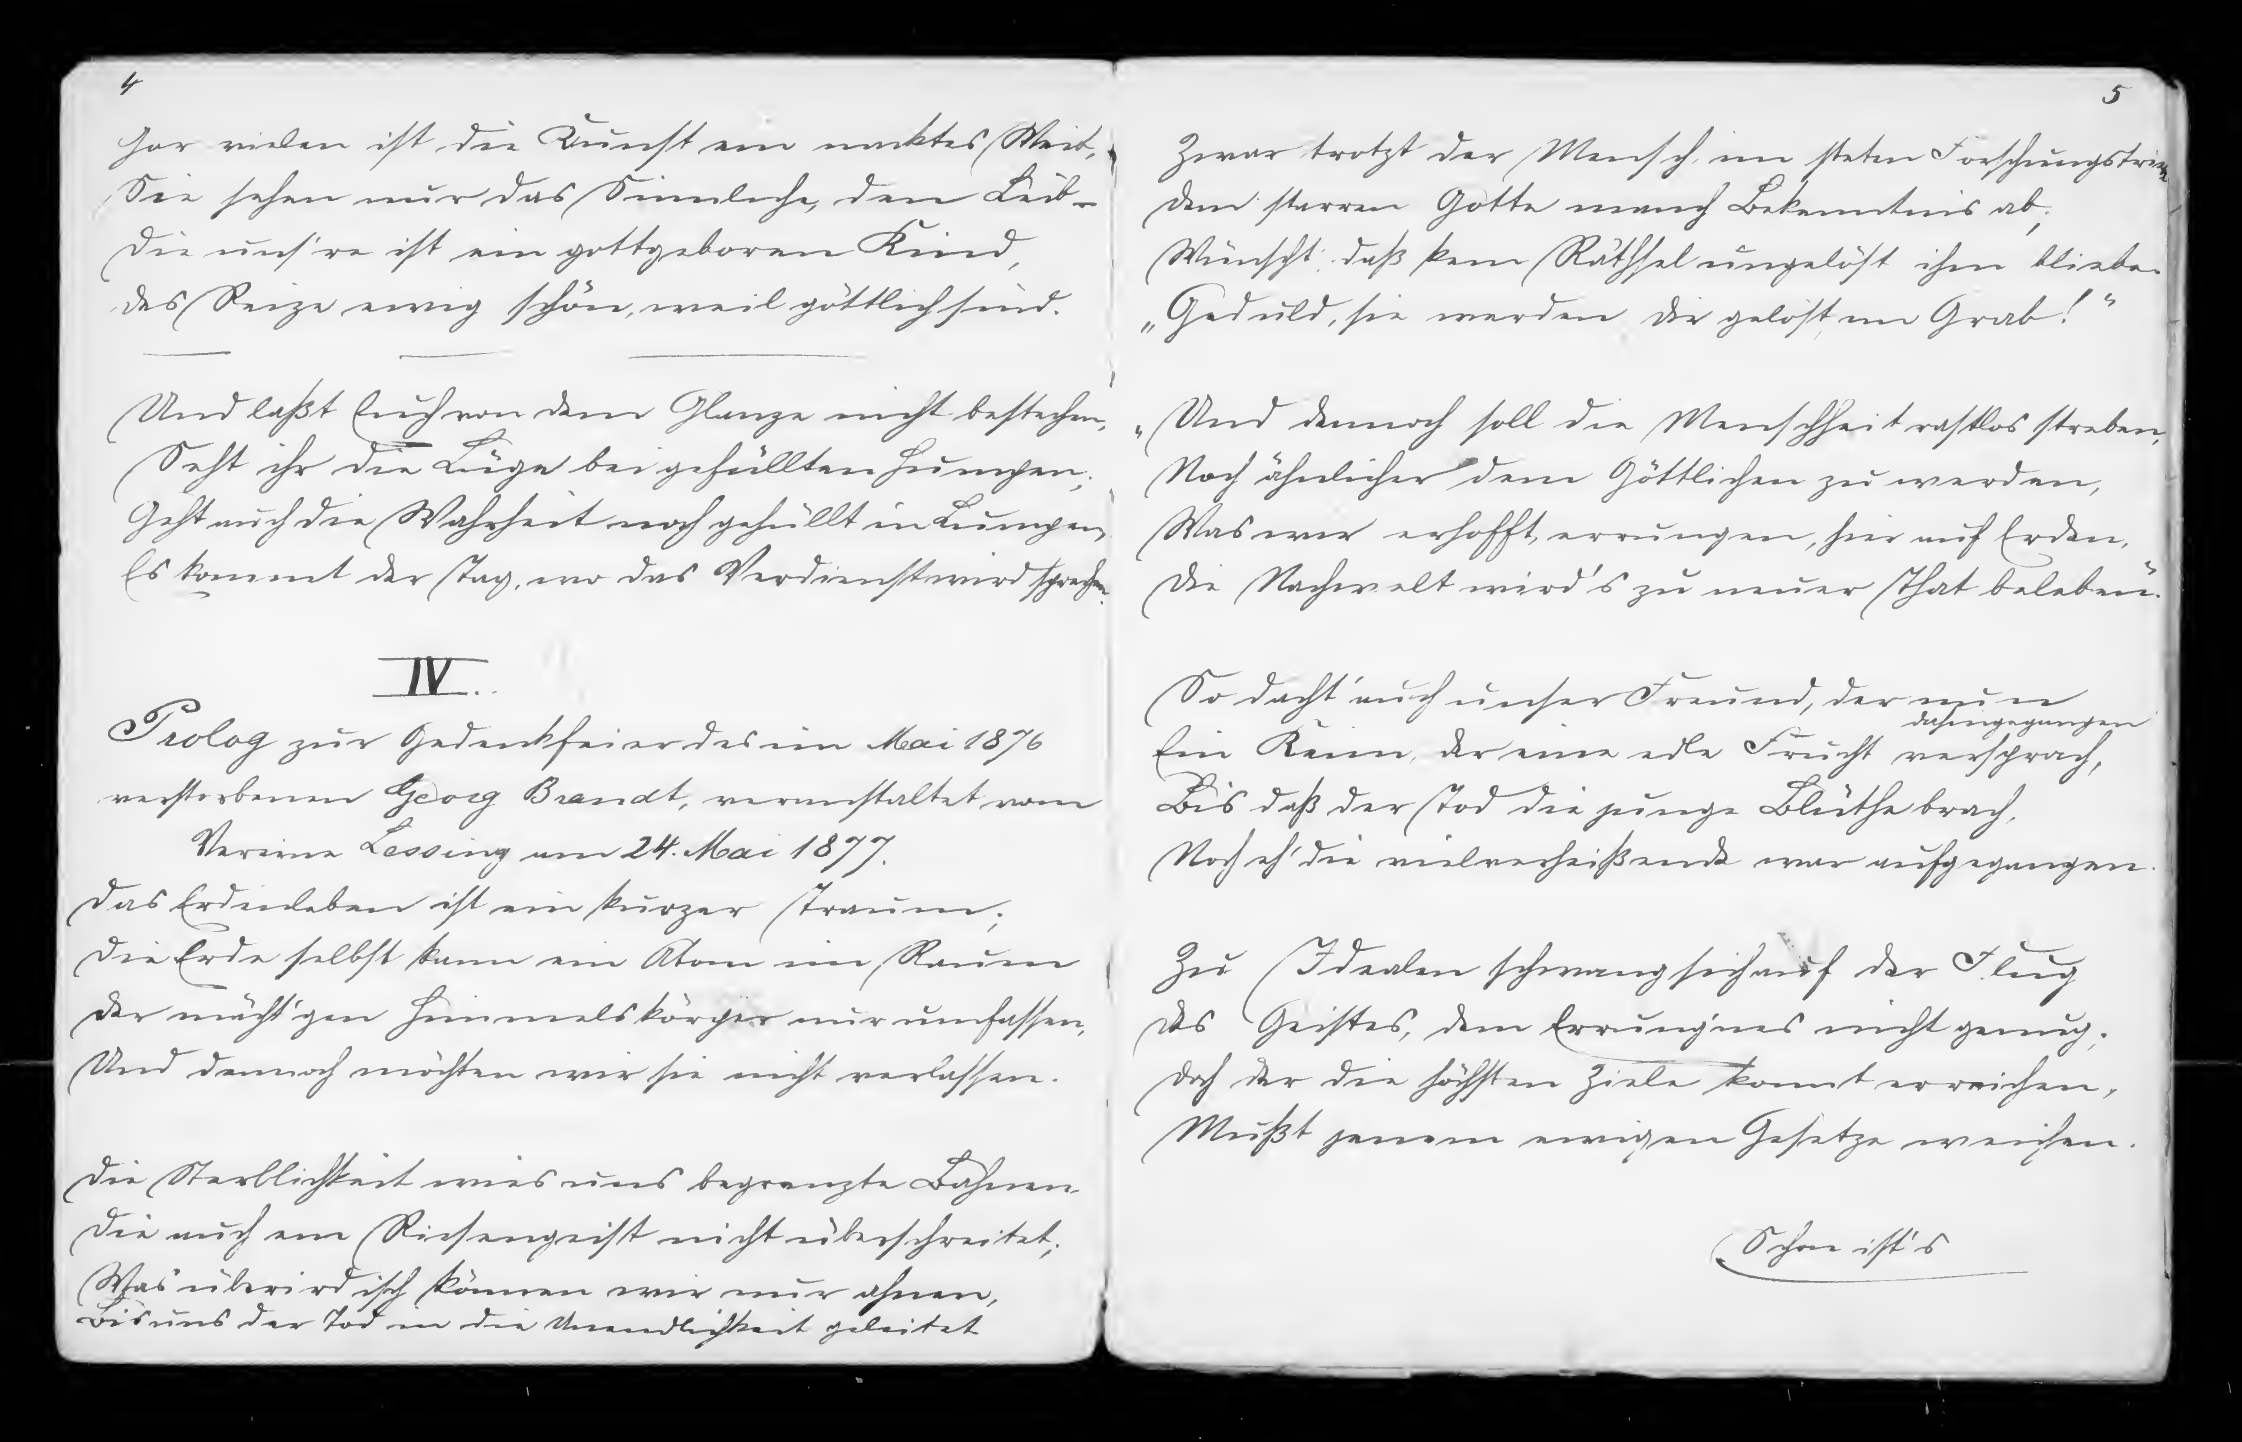 4
Gar vielen ist die Kunst ein nacktes Weib,
Sie sehen nur das Sinnliche, den Leib –
Die uns're ist ein gottgeboren Kind,
Des Reize ewig schön, weil göttlich sind.
Und laßt Euch von dem Glanze nicht bestechen,
Seht ihr die Lüge bei gefüllten Humpen;
Geht auch die Wahrheit noch gehüllt in Lumpen,
Es kommt der Tag, wo das Verdienst wird sprechen.
IV.
Prolog zur Gedenkfeier des im Mai 1876
verstorbenen Georg Brandt, veranstaltet vom
Vereine Lessing am 24. Mai 1877.
Das Erdenleben ist ein kurzer Traum;
Die Erde selbst kann ein Atom im Raum
Der mächt'gen Himmelskörper nur umfassen,
Und dennoch möchten wir sie nicht verlassen.
Die Sterblichkeit wies uns begrenzte Bahnen
Die auch ein Riesengeist nicht überschreitet;
Was überirdisch können wir nur ahnen,
Bis uns der Tod in die Unendlichkeit geleitet
5
Zwar trotzt der Mensch im steten Forschungstriebe
Dem starren Gotte manch Bekenntnis ab;
Wünscht, daß kein Räthsel ungelöst ihm bliebe.
„Geduld, sie werden dir gelöst im Grab!"
„Und dennoch soll die Menschheit rastlos streben,
Noch ähnlicher dem Göttlichen zu werden,
Was wir erhofft, errungen, hier auf Erden,
Die Nachwelt wird's zu neuer That beleben".
So dacht' auch unser Freund, der nun
dahingegangen
Ein Keim, der eine edle Frucht versprach,
Bis daß der Tod die junge Blüthe brach,
Noch eh' die vielverheißende war aufgegangen.
Zu Idealen schwang sich auf der Flug
Des Geistes, dem Errung'nes nicht genug;
Doch der die höchsten Ziele konnt erreichen,
Mußt jenem ewigen Gesetze weichen.
Schon ist's